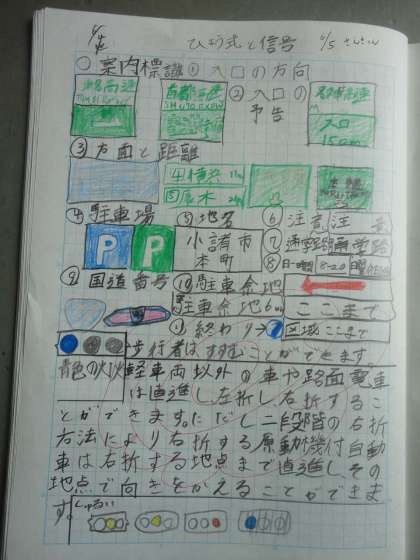 ひょう式と信号 6/5
○案内標識①入口の方向
②入口の
予告
入口
150m
③方面と距離
④横浜
厚木
④駐車場 ⑤地名 ⑥注意
P P 小諸市
本町
⑦通学路 通学路
⑧日・時間 8-20
⑨国道番号 ⑩駐車余地
駐車余地6m ここまで
⑪終わり→ 区域ここまで
歩行者はすすむことができます
青色の火 軽車両以外の車や路面電車
は直進し左折し右折するこ
とができます。ただし二段階の右折
方法により右折する原動機付自動
車は右折する地点まで直進しその
地点で向きをかえることができま
す。